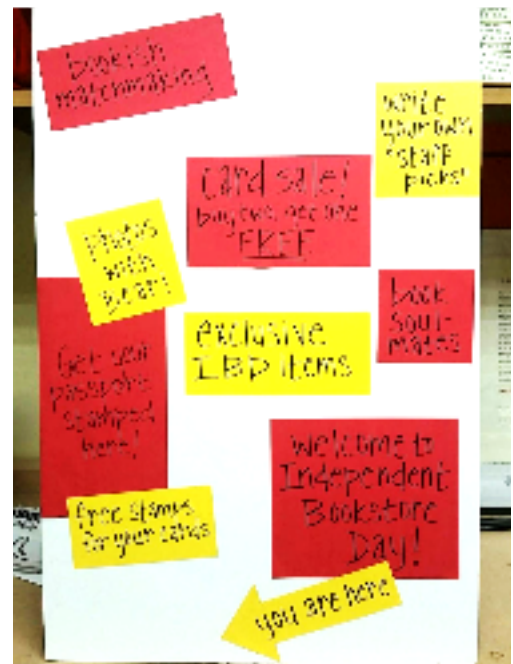 bookish
matchmaking
write
your own
"staff
picks!"
Card sale!
buy two, get one
FREE
Photos
with
book
soul-
mates
exclusive
IBD items
Get your
passport
stamped
here!
Welcome to
Independent
Bookstore
Day!
free stamps
for your cards
you are here